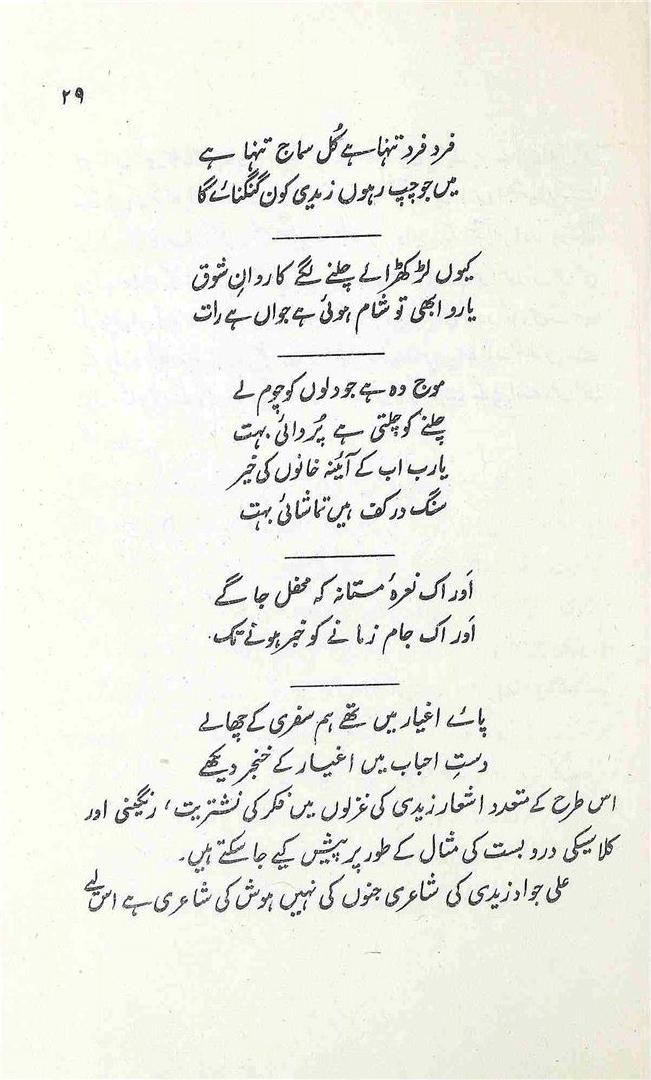 ۲۹
فرد فرد تنہا ہے کُل سماج تنہا ہے
میں جو چپ رہوں زیدی کون گنگنائے گا
کیوں لڑکھڑائے چلنے لگے کاروانِ شوق
یارو ابھی تو شام ہوئی ہے جواں ہے رات
موج وہ ہے جو دلوں کو چوم لے
چلنے کو چلتی ہے پُروائی بہت
یارب اب کے آئینہ خانوں کی خیر
سنگ در کف ہیں تماشائی بہت
اَور اک نعرۂ مستانہ کہ محفل جاگے
اَور اک جام زمانے کو خبر ہونے تک
پائے اغیار میں تھے ہم سفری کے چھالے
دستِ احباب میں اغیار کے خنجر دیکھے
اس طرح کے متعدد اشعار زیدی کی غزلوں میں فکر کی نشتریت، رنگینی اور
کلاسیکی در و بست کی مثال کے طور پر پیش کیے جا سکتے ہیں۔
علی جواد زیدی کی شاعری جنوں کی نہیں ہوش کی شاعری ہے اس لیے